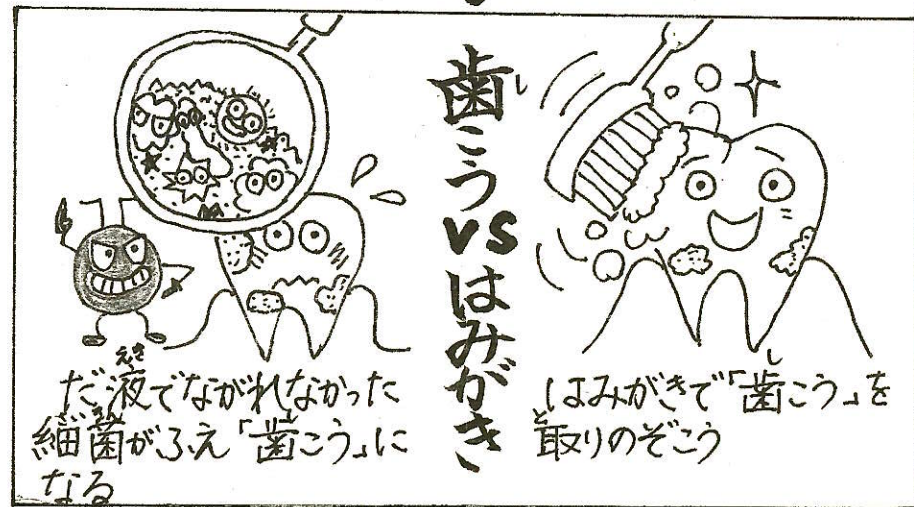 歯こうvsはみがき
だ液でながれなかった
細菌がふえ「歯こう」に
なる
はみがきで「歯こう」を
取りのぞこう